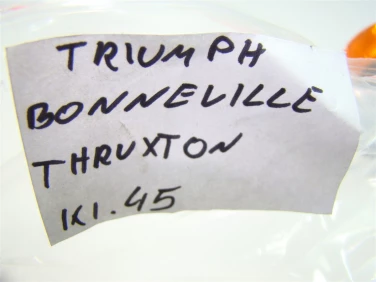 TRIUMPH
BONNEVILLE
THRUXTON
KI.45